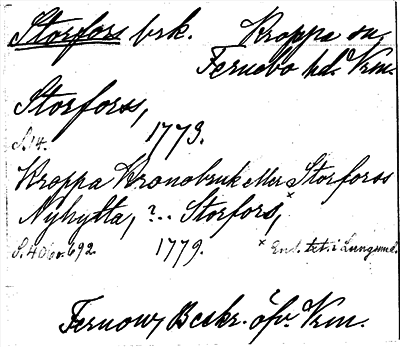 Storfors brk. Kroppa sn,
Fernebo hd. Vrm.
Storfors,
S. 14. 1773.
Kroppa Kronobruk eller Storforss
Nyhytta, ?.. Storfors,×
S. 406 692. 1779. × End. tit. i Lungsund.
Fernow, Beskr. öfv. Vrm.